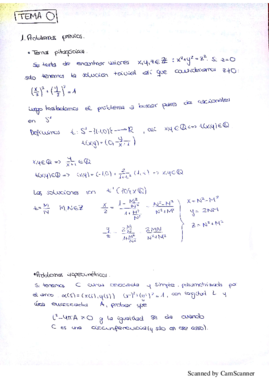 TEMA 0
1. Problemas previos.
• Ternas pitagóricas
Se trata de encontrar valores x,y,z ∈ Z : x²+y² = z². Si z=0
sólo tenemos la solución trivial así que consideramos z≠0.
(x/z)² + (y/z)² = 1
Luego trasladamos el problema a buscar pares de racionales
en S¹
Definimos t: S¹-{(-1,0)} → R, así x,y ∈ Q ⟺ t(x,y) ∈ Q
x,y ∈ Q ⟹
Las soluciones son
t = M/N M,N ∈ Z
x = N²-M²
y = 2NM
z = N²+M²
• Problemas isoperimétricos
Si tenemos C curva cerrada y simple parametrizada por
el arco α(s) = (x(s), y(s)) (x')²+(y')² = 1, con longitud L y
área encerrada A, probar que
L² - 4πA ≥ 0 y la igualdad se da cuando
C es una circunferencia (y sólo en ese caso).
Scanned by CamScanner